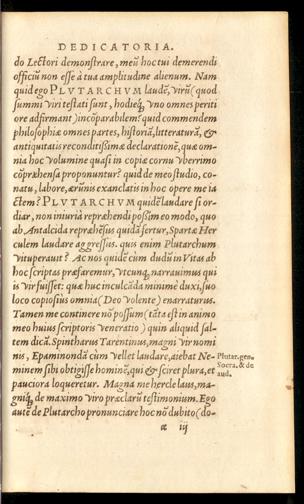 DEDICATORIA.
do Lectori demonstrare, meũ hoc tui demerendi
officiũ non esse à tua amplitudine alienum. Nam
quid ego PLVTARCHVM laudẽ, virũ (quod
summi viri testati sunt, hodieq́; vno omnes periti
ore adfirmant) incõparabilem? quid commendem
philosophiæ omnes partes, historiã, litteraturã, &
antiquitatis reconditissimæ declarationẽ, quæ om-
nia hoc volumine quasi in copiæ cornu vberrimo
cõpræhensa proponuntur? quid de meo studio, co-
natu, labore, ærũnis exanclatis in hoc opere me ia
ctem? PLVTARCHVM quidẽ laudare si or-
diar, non iniuria repræhendi possim eo modo, quo
ab Antalcida repræhẽsus quidã fertur, Spartæ Her
culem laudare aggressus. quis enim Plutarchum
vituperauit? Ac nos quidẽ cùm dudũ in Vitas ab
hoc scriptas præfaremur, vtcunq; narrauimus qui
is vir fuisset: quæ huc inculcãda minimè duxi, suo
loco copiosius omnia (Deo volente) enarraturus.
Tamen me continere nõ possum (tãta est in animo
meo huius scriptoris veneratio) quin aliquid sal-
tem dicã. Spintharus Tarentinus, magni vir nomi
nis, Epaminondã cùm vellet laudare, aiebat Ne-
minem sibi obtigisse hominẽ, qui & sciret plura, et
pauciora loqueretur. Magna me hercle laus, ma-
gniq́; de maximo viro præclarũ testimonium. Ego
autẽ de Plutarcho pronunciare hoc nõ dubito (do-
Plutar. gen.
Socra. & de
aud.
æ iij